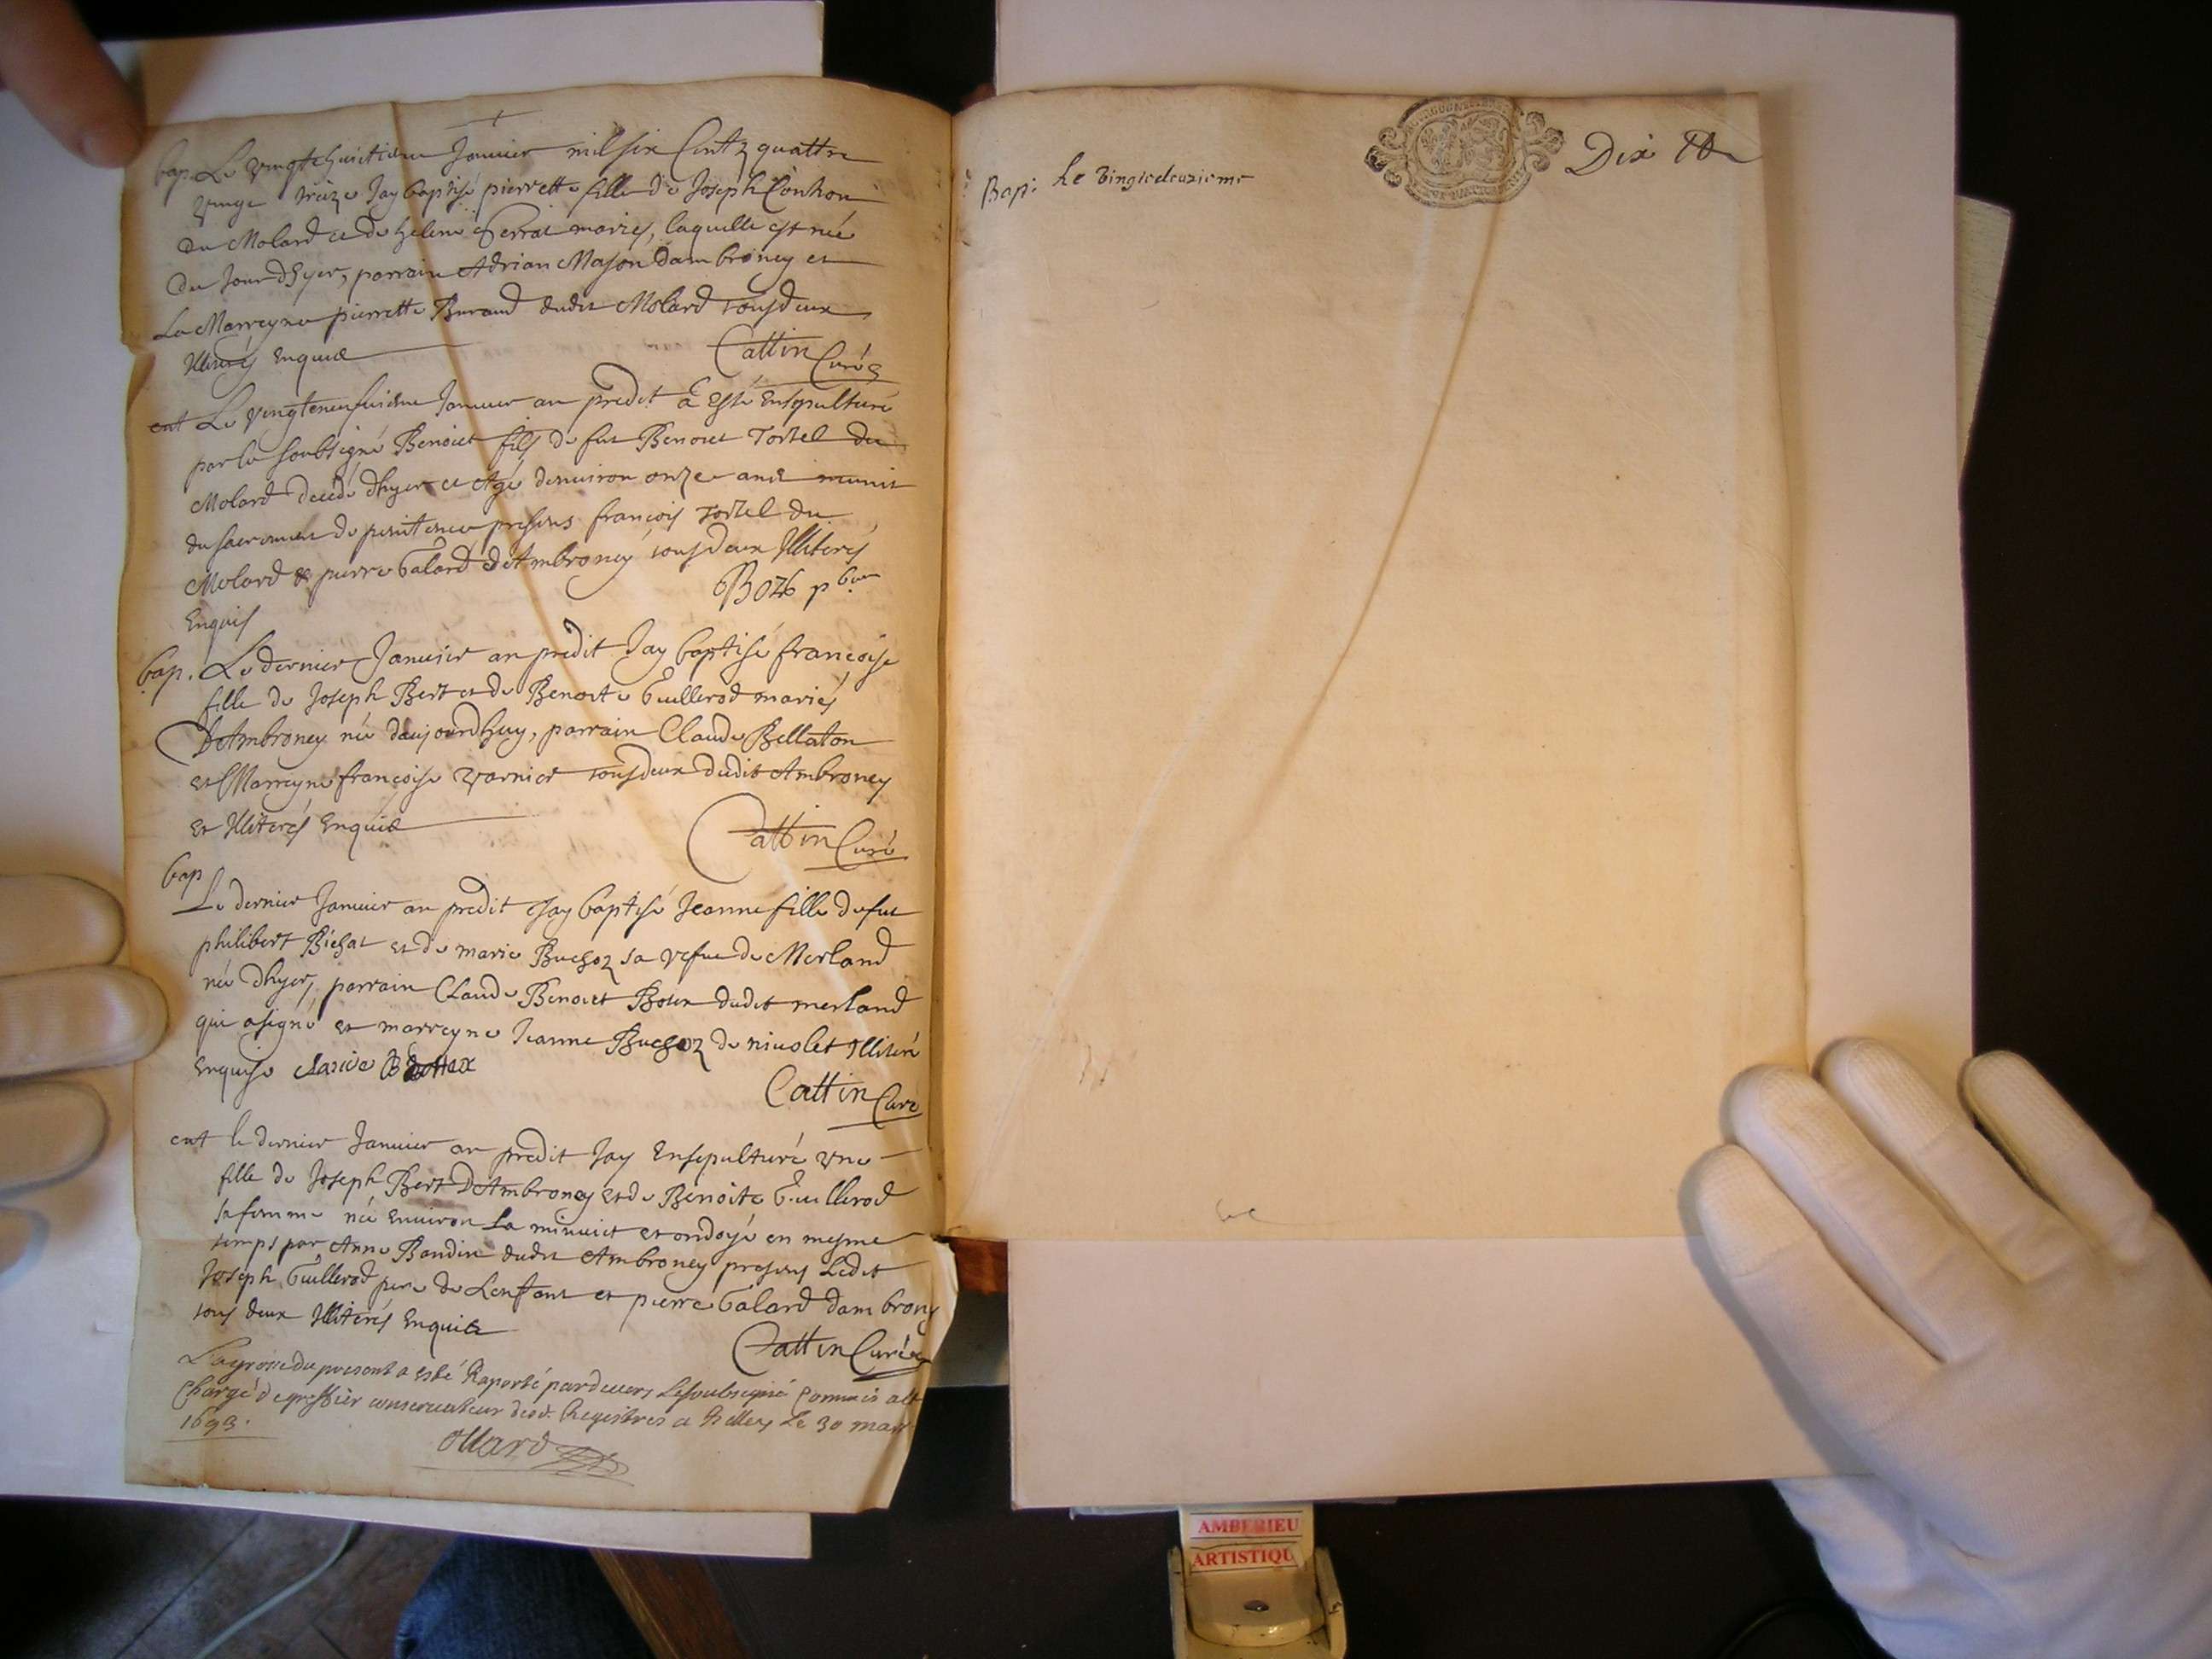 bap. Le vingthuitieme Januier mil six Centz quattre
vingt treize Jay baptisé pierrette fille de Joseph Conhon
du Molard et de helene Perrat mariés, laquelle est née
du Jour dhyer, parrain Adrian Mason dambroney et
La Marreyne pierrette Buraud dudit Molard tousdeux
Illiterés Enquis
Cattin Curé
ent Le vingtneufuieme Januier an predit a esté ensepulturé
par le soubsigné Benoict fils de fut Benoict Tortel du
Molard decedé dhyer et Agé denuiron onze ans munit
du sacrement de penitence presens francois Tortel du
Molard & pierre Galard dAmbroney tousdeux Illiterés
Enquis
Bap. Le dernier Januier an predit Jay baptisé francoise
fille de Joseph Bert et de Benoite Guillerod mariés
DAmbroney née daujourdhuy, parrain Claude Bellaton
et Marreyne françoise varnier tousdeux dudit Ambroney
et Illiterés Enquis
Cattin Curé
bap
Le dernier Januier an predit Jay baptisé Jeanne fille de fut
philibert Bichat et de marie Buchoz sa vefue de Merland
née dhyer, parrain Claude Benoict dudit merland
qui asigné et marreyne Jeanne Buchoz de niuolet Illiteré
Enquise
Cattin Curé
ent le dernier Januier an predit Jay Ensepulturé vne
fille de Joseph Bert DAmbroney et de Benoite Guillerod
sa femme née enuiron La minuict et ondoyé en mesme
temps par Anne Bandin dudit Ambroney presens Ledit
Joseph Guillerod pere de Lenfant et pierre Galard dambrony
tous deux Illiterés Enquis
Cattin Curé
La grosse du present a esté Raporté pardeuers Lesoubsigné Commis
Chargé de greffier conseruateur desd. Registres a Belley Le 30 mars
1693.
Ollard
Bap: Le vingtedeuzieme
Dix
AMBERIEU
ARTISTIQU